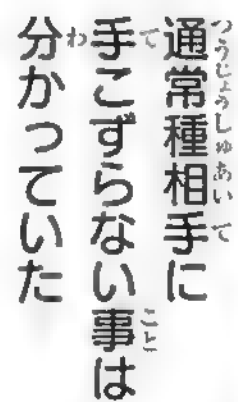 通常種相手に
手こずらない事は
分かっていた